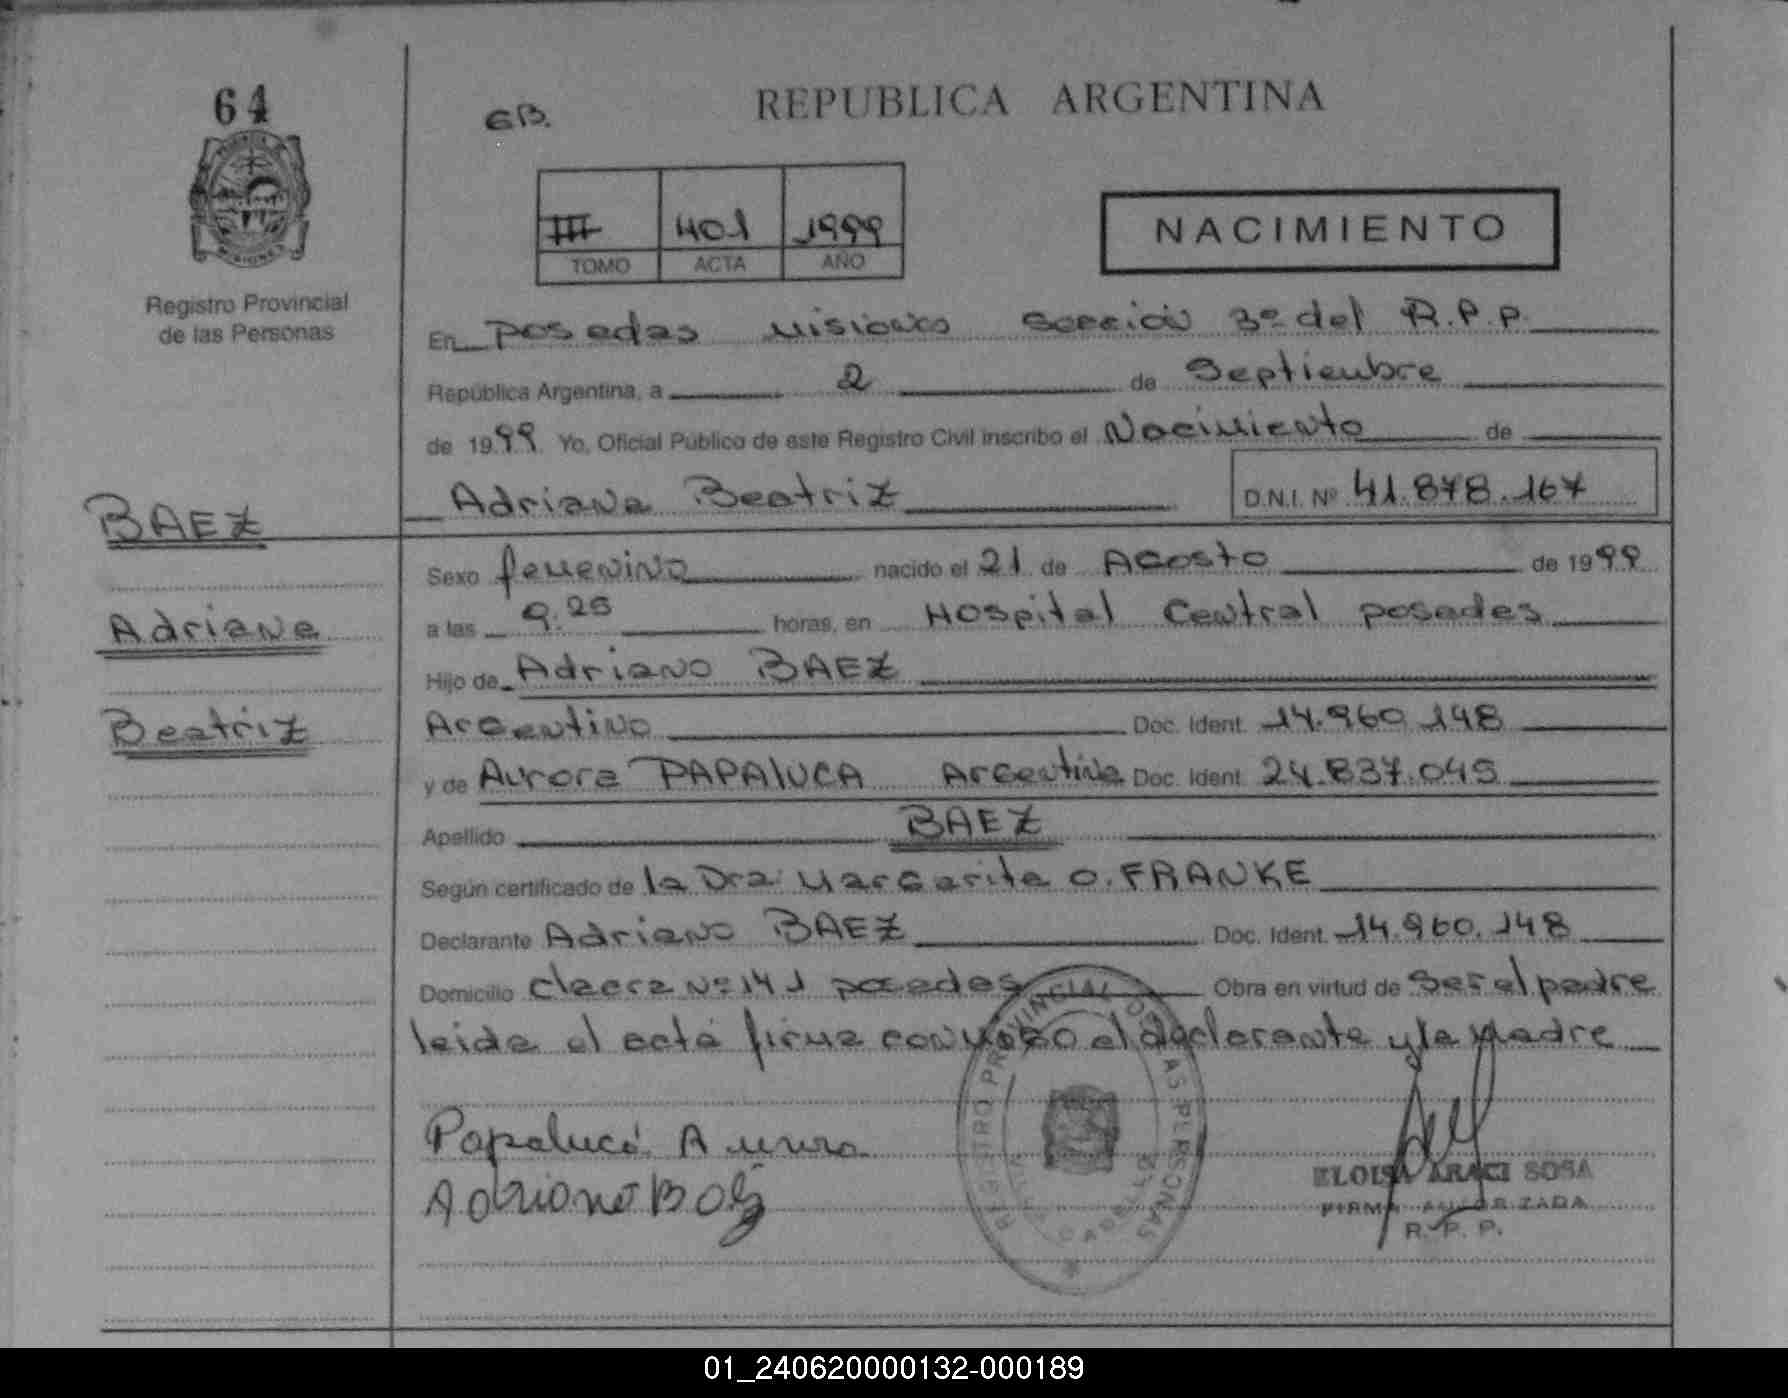 64
Registro Provincial
de las Personas
BAEZ
Adriana
Beatriz
GB.
REPUBLICA ARGENTINA
III 401 1999
TOMO ACTA AÑO
NACIMIENTO
En Posadas Misiones Sección 3º del R.P.P.
República Argentina, a 2 de Septiembre
de 1999 Yo, Oficial Público de este Registro Civil inscribo el Nacimiento de
Adriana Beatriz D.N.I. Nº 41.878.167
Sexo femenino nacido el 21 de Agosto de 1999
a las 9.25 horas, en Hospital Central posadas
Hijo de Adriano BAEZ
Argentino Doc. Ident. 14.960.148
y de Aurora PAPALUCA Argentina Doc. Ident. 24.837.045
Apellido BAEZ
Según certificado de la Dra Margarita O. FRANKE
Declarante Adriano BAEZ Doc. Ident. 14.960.148
Domicilio Chacra Nº 141 posadas Obra en virtud de ser el padre
leida el acta firma conmigo el declarante y la madre
REGISTRO PROVINCIAL DE LAS PERSONAS
Papaluca Aurora
Adriano
ELOISA ARACI SOSA
FIRMA AUTORIZADA
R. P. P.
01_240620000132-000189